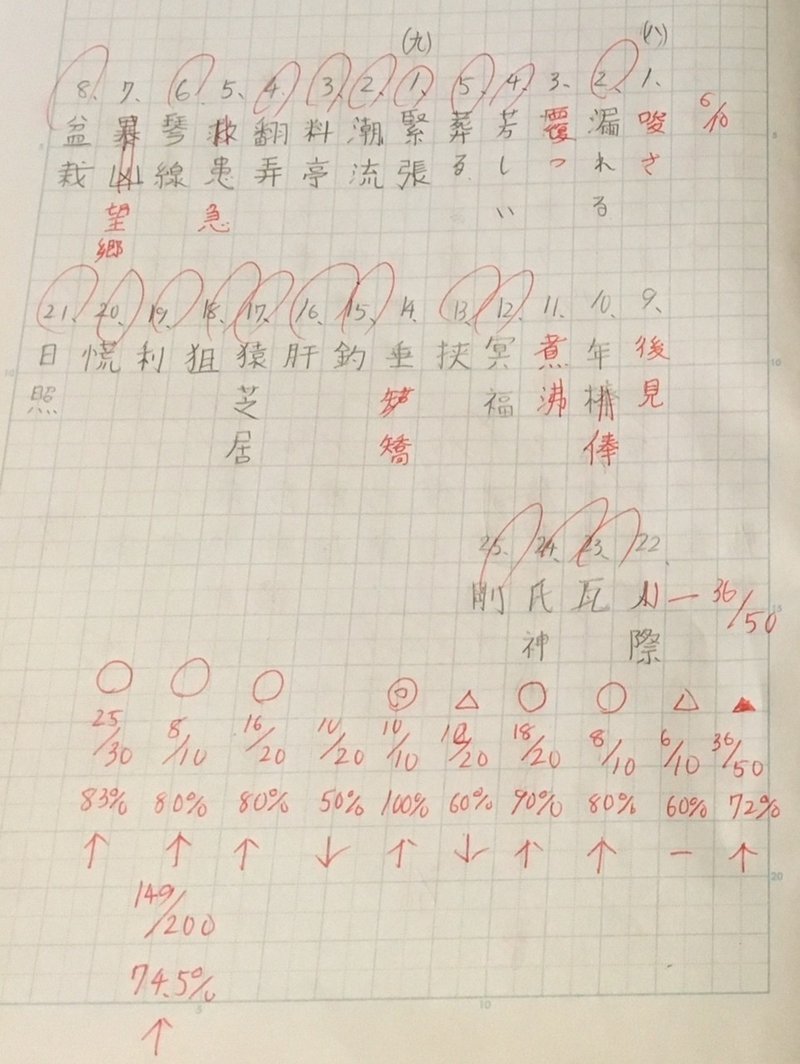 6/10
(八)
1、唆さ
2、漏れる
3、覆っ
4、芳しい
5、葬る
(九)
1、緊張
2、潮流
3、料亭
4、翻弄
5、救患急
6、琴線
7、暴望郷
8、盆栽
9、後見
10、年俸
11、煮沸
12、冥福
13、挟
14、垂矯
15、釣
16、肝
17、猿芝居
18、狙
19、利
20、慌
21、日照
22、際
23、瓦
24、氏神
25、
36/50
○ ○ ○ ◎ △ ○ ○ △ ▲
25/30 8/10 16/20 10/20 10/10 12/20 18/20 8/10 6/10 36/50
83% 80% 80% 50% 100% 60% 90% 80% 60% 72%
↑ ↑ ↑ ↓ ↑ ↓ ↑ ↑ － ↑
149/200
74.5%
↑